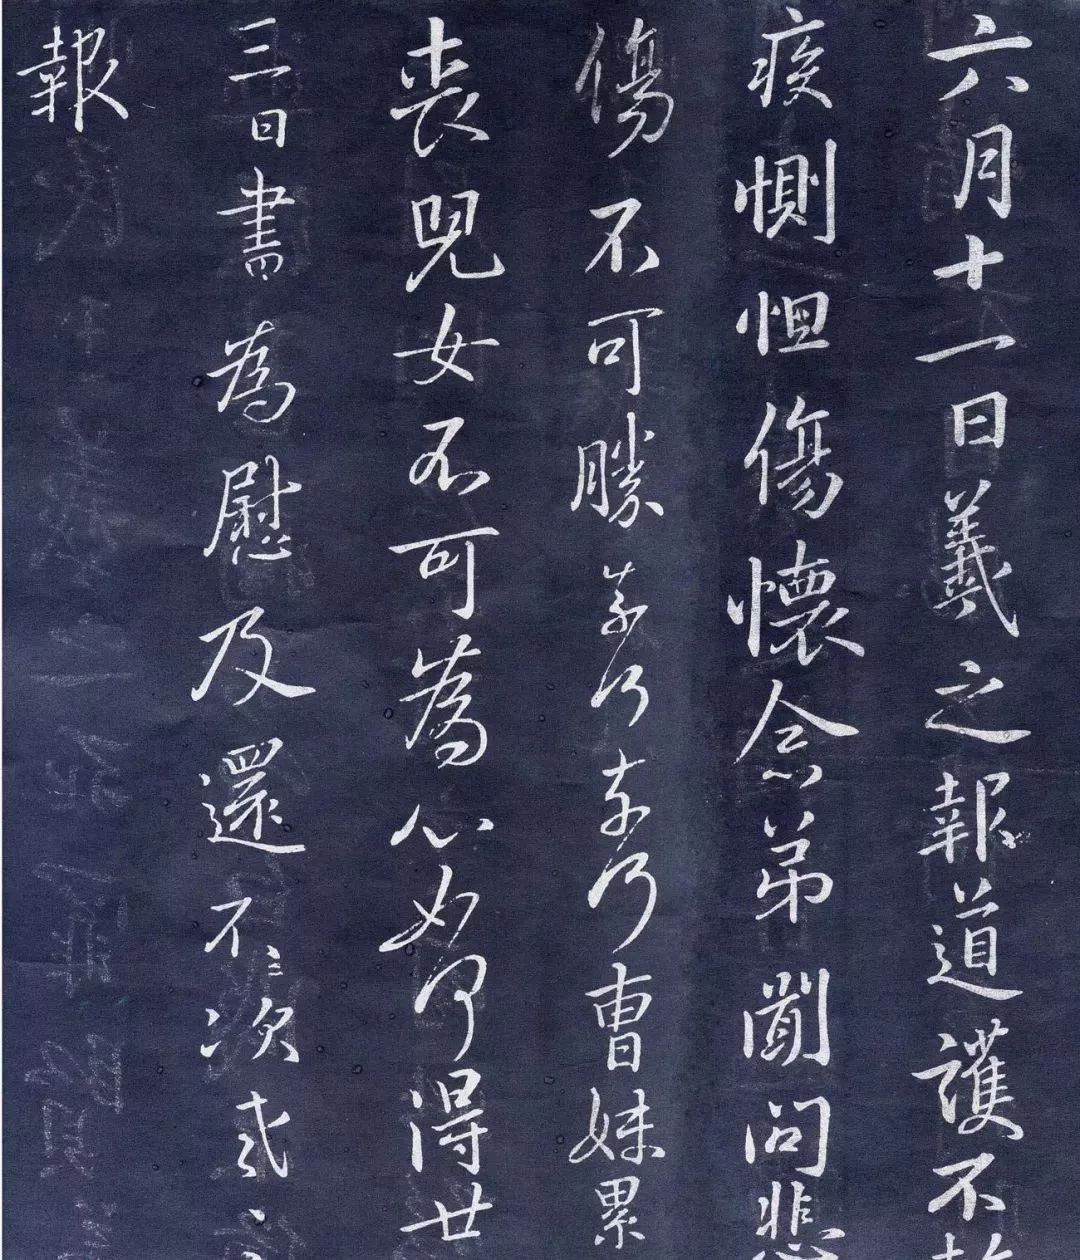 六月十一日羲之報道護不
疾惻怛傷懷念弟聞問悲
傷不可勝奈何奈何曹妹累
喪兒女不可為心如何得廿
三日書為慰及還不次羲之
報